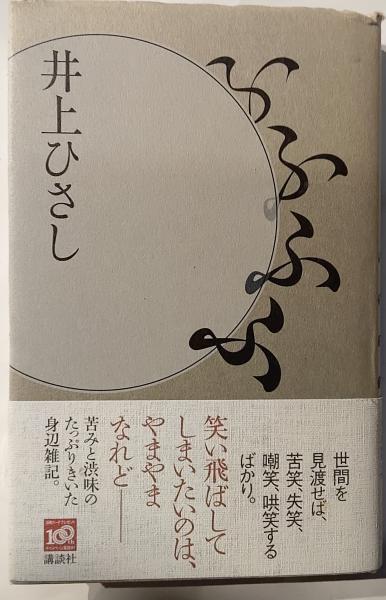 ふふふふ
井上ひさし
世間を
見渡せば、
苦笑、失笑、
嘲笑、哄笑する
ばかり。
笑い飛ばして
しまいたいのは、
やまやま
なれど――
苦みと渋味の
たっぷりきいた
身辺雑記。
100th
講談社